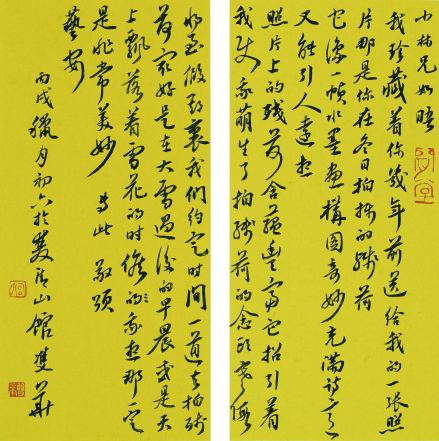 小林兄如晤
我珍藏着你幾年前送给我的一张照
片那是你在冬日拍摄的残荷
它像一帧水墨画構图奇妙充满诗意
又能引人遐想
照片上的残荷含蕴丰富它招引着
我使我萌生了拍残荷的念头
我们约定时间一道去拍残
荷最好是在大雪過后的早晨或是天
上飘落着雪花的时候我想那一定
是非常美妙 专此 敬颂
藝安
丙戌臘月初六于山館